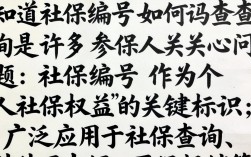 知道社保编号如何冯查查
询是许多参保人关关心问
题：社保编号 作为个
人社保权益”的关键标识；
广泛应用于社保查询、